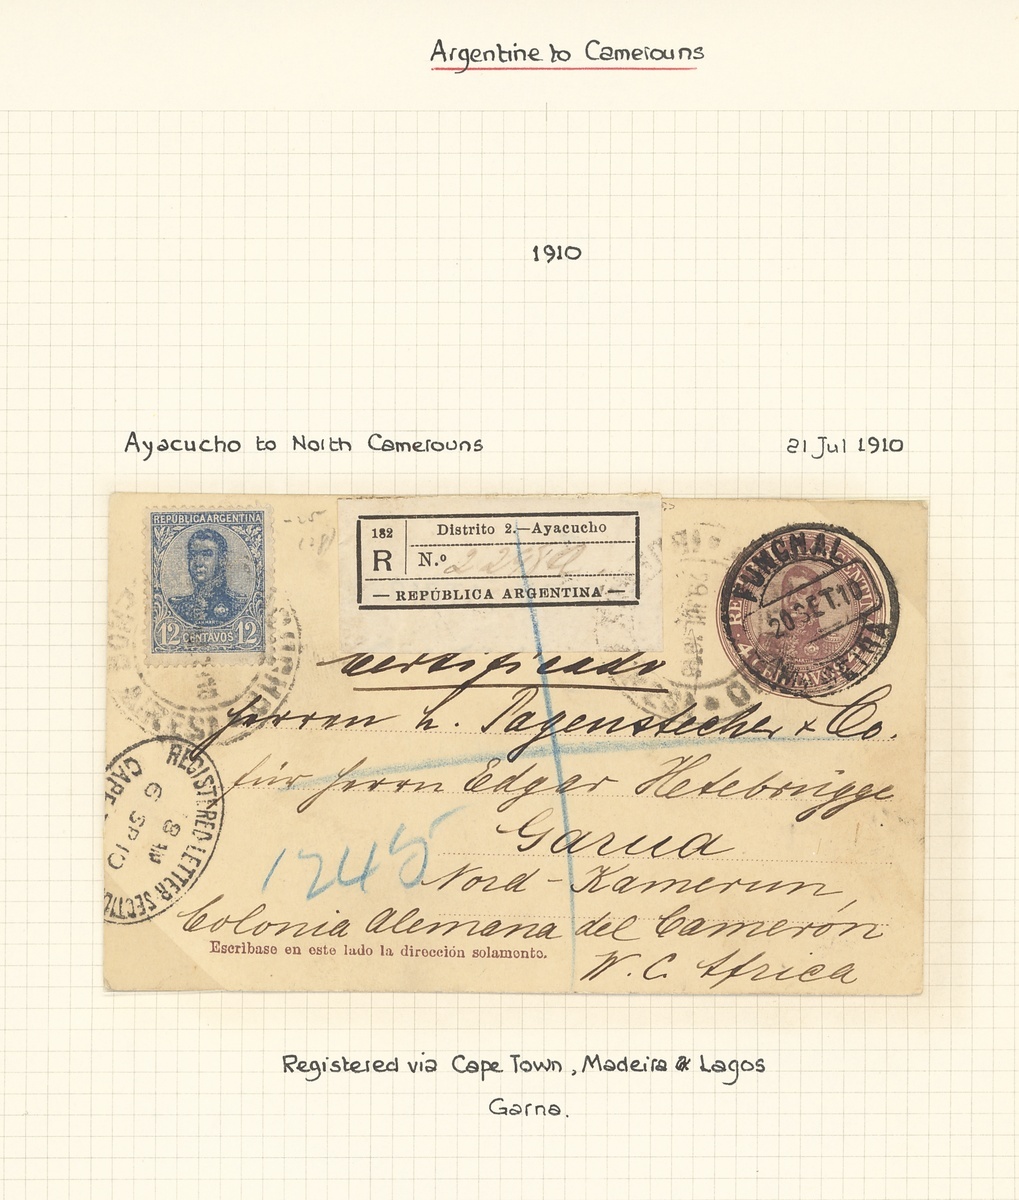 Argentine to Camerouns
1910
Ayacucho to North Camerouns
21 Jul 1910
REPÚBLICA ARGENTINA
SAN MARTIN
12 CENTAVOS 12
182
R
Distrito 2.—Ayacucho
N.º
— REPÚBLICA ARGENTINA —
FUNCHAL
20 SET.10
certificado
Herren h. Pagenstecher & Co.
für Herrn Edgar Hetebrügge
Garua
Nord-Kamerun,
Colonia Alemana del Camerón
W. C. Africa
1245
REGISTERED LETTER SECTIO
CAPE
8 AM
6 SP 10
Escribase en este lado la dirección solamente.
Registered via Cape Town, Madeira & Lagos
Garna.